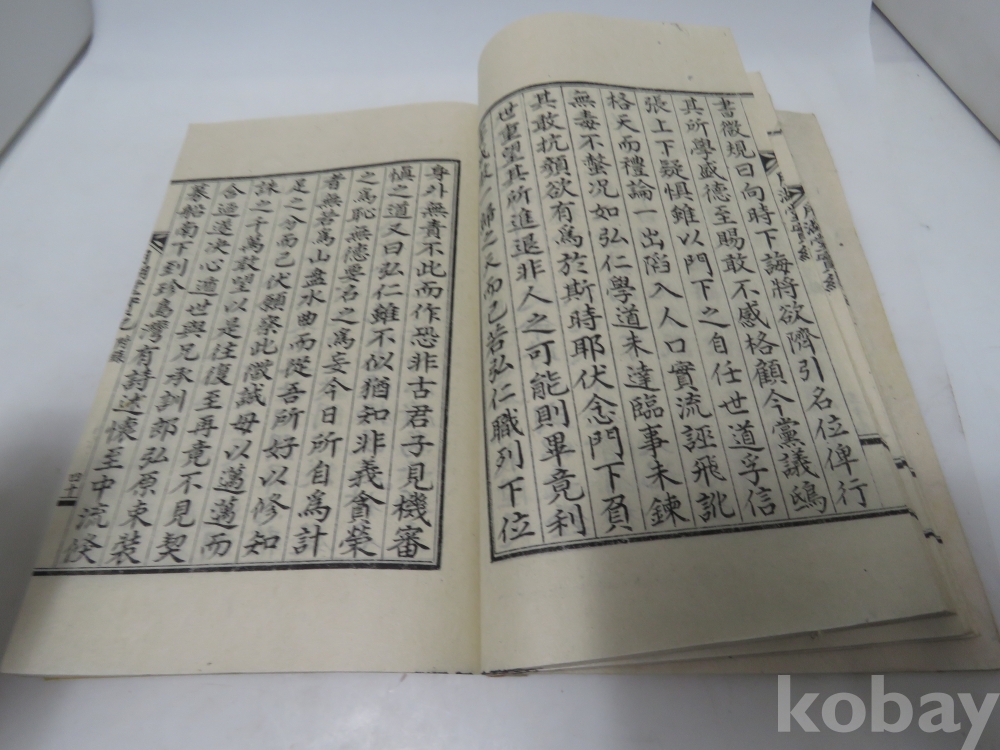 書微規曰向時下誨將欲隮引名位俾行
其所學盛德至賜敢不感格顧今黨議鴟
張上下疑懼雖以門下之自任世道孚信
格天而禮論一出陷入人口實流誣飛訛
無毒不螫况如弘仁學道未達臨事未鍊
其敢抗顏欲有爲於斯時耶伏念門下負
世重望其所進退非人之可能則畢竟利
之天而已若弘仁職列下位
身外無責不此而作恐非古君子見機審
愼之道又曰弘仁雖不似猶知非義貪榮
之爲恥無德要名之爲妄今日所自爲計
者無若烏山盘水曲而從吾所好以修知
足之分而已伏願察此微誠毋以邁邁而
誅之千萬敢望以是往復至再竟不見契
合造遂决心遁世與兄承訓郎弘原束裝
募船南下到珍島灣有詩述懷至中流候
附錄
四十
kobay